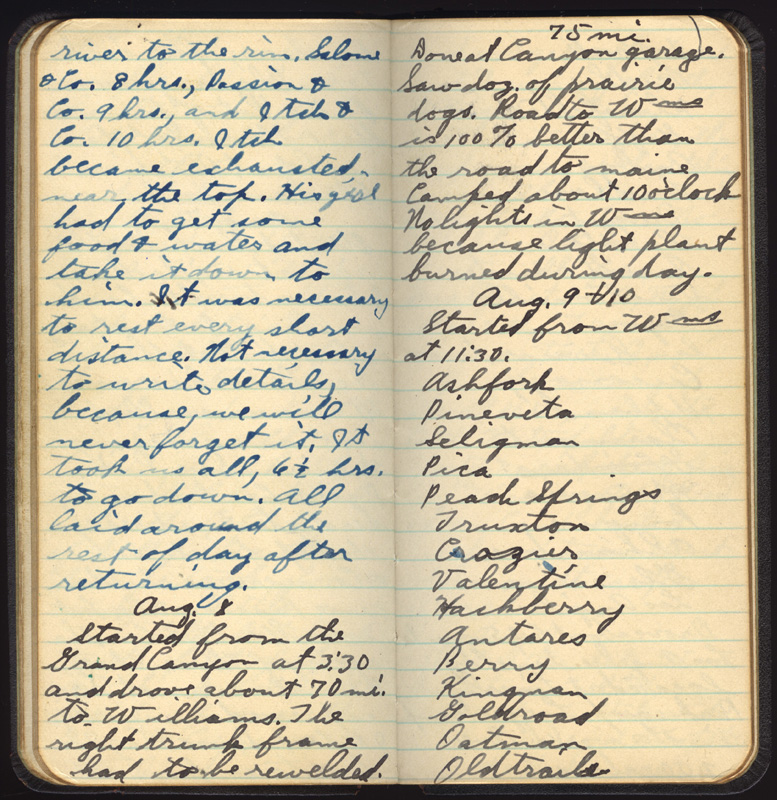 river to the rim. Salome
& Co. 8 hrs., Passion &
Co. 9 hrs., and I tch &
Co. 10 hrs. I tch
became exhausted,
near the top. His girl
had to get some
food & water and
take it down to
him. It was necessary
to rest every short
distance. Not necessary
to write details,
because, we will
never forget it. It
took us all, 6½ hrs.
to go down. All
laid around the
rest of day after
returning.
Aug. 8
Started from the
Grand Canyon at 3:30
and drove about 70 mi.
to Williams. The
right trunk frame
had to be rewelded.
75 mi.
Done at Canyon garage.
Saw doz. of prairie
dogs. Road to Wms
is 100% better than
the road to maine
Camped about 10 o'clock
No lights in Wms
because light plant
burned during day.
Aug. 9 + 10
Started from Wms
at 11:30.
Ashfork
Pineveta
Seligman
Pica
Peach Springs
Truxton
Crozier
Valentine
Hackberry
Antares
Berry
Kingman
Goldroad
Oatman
Oldtrails